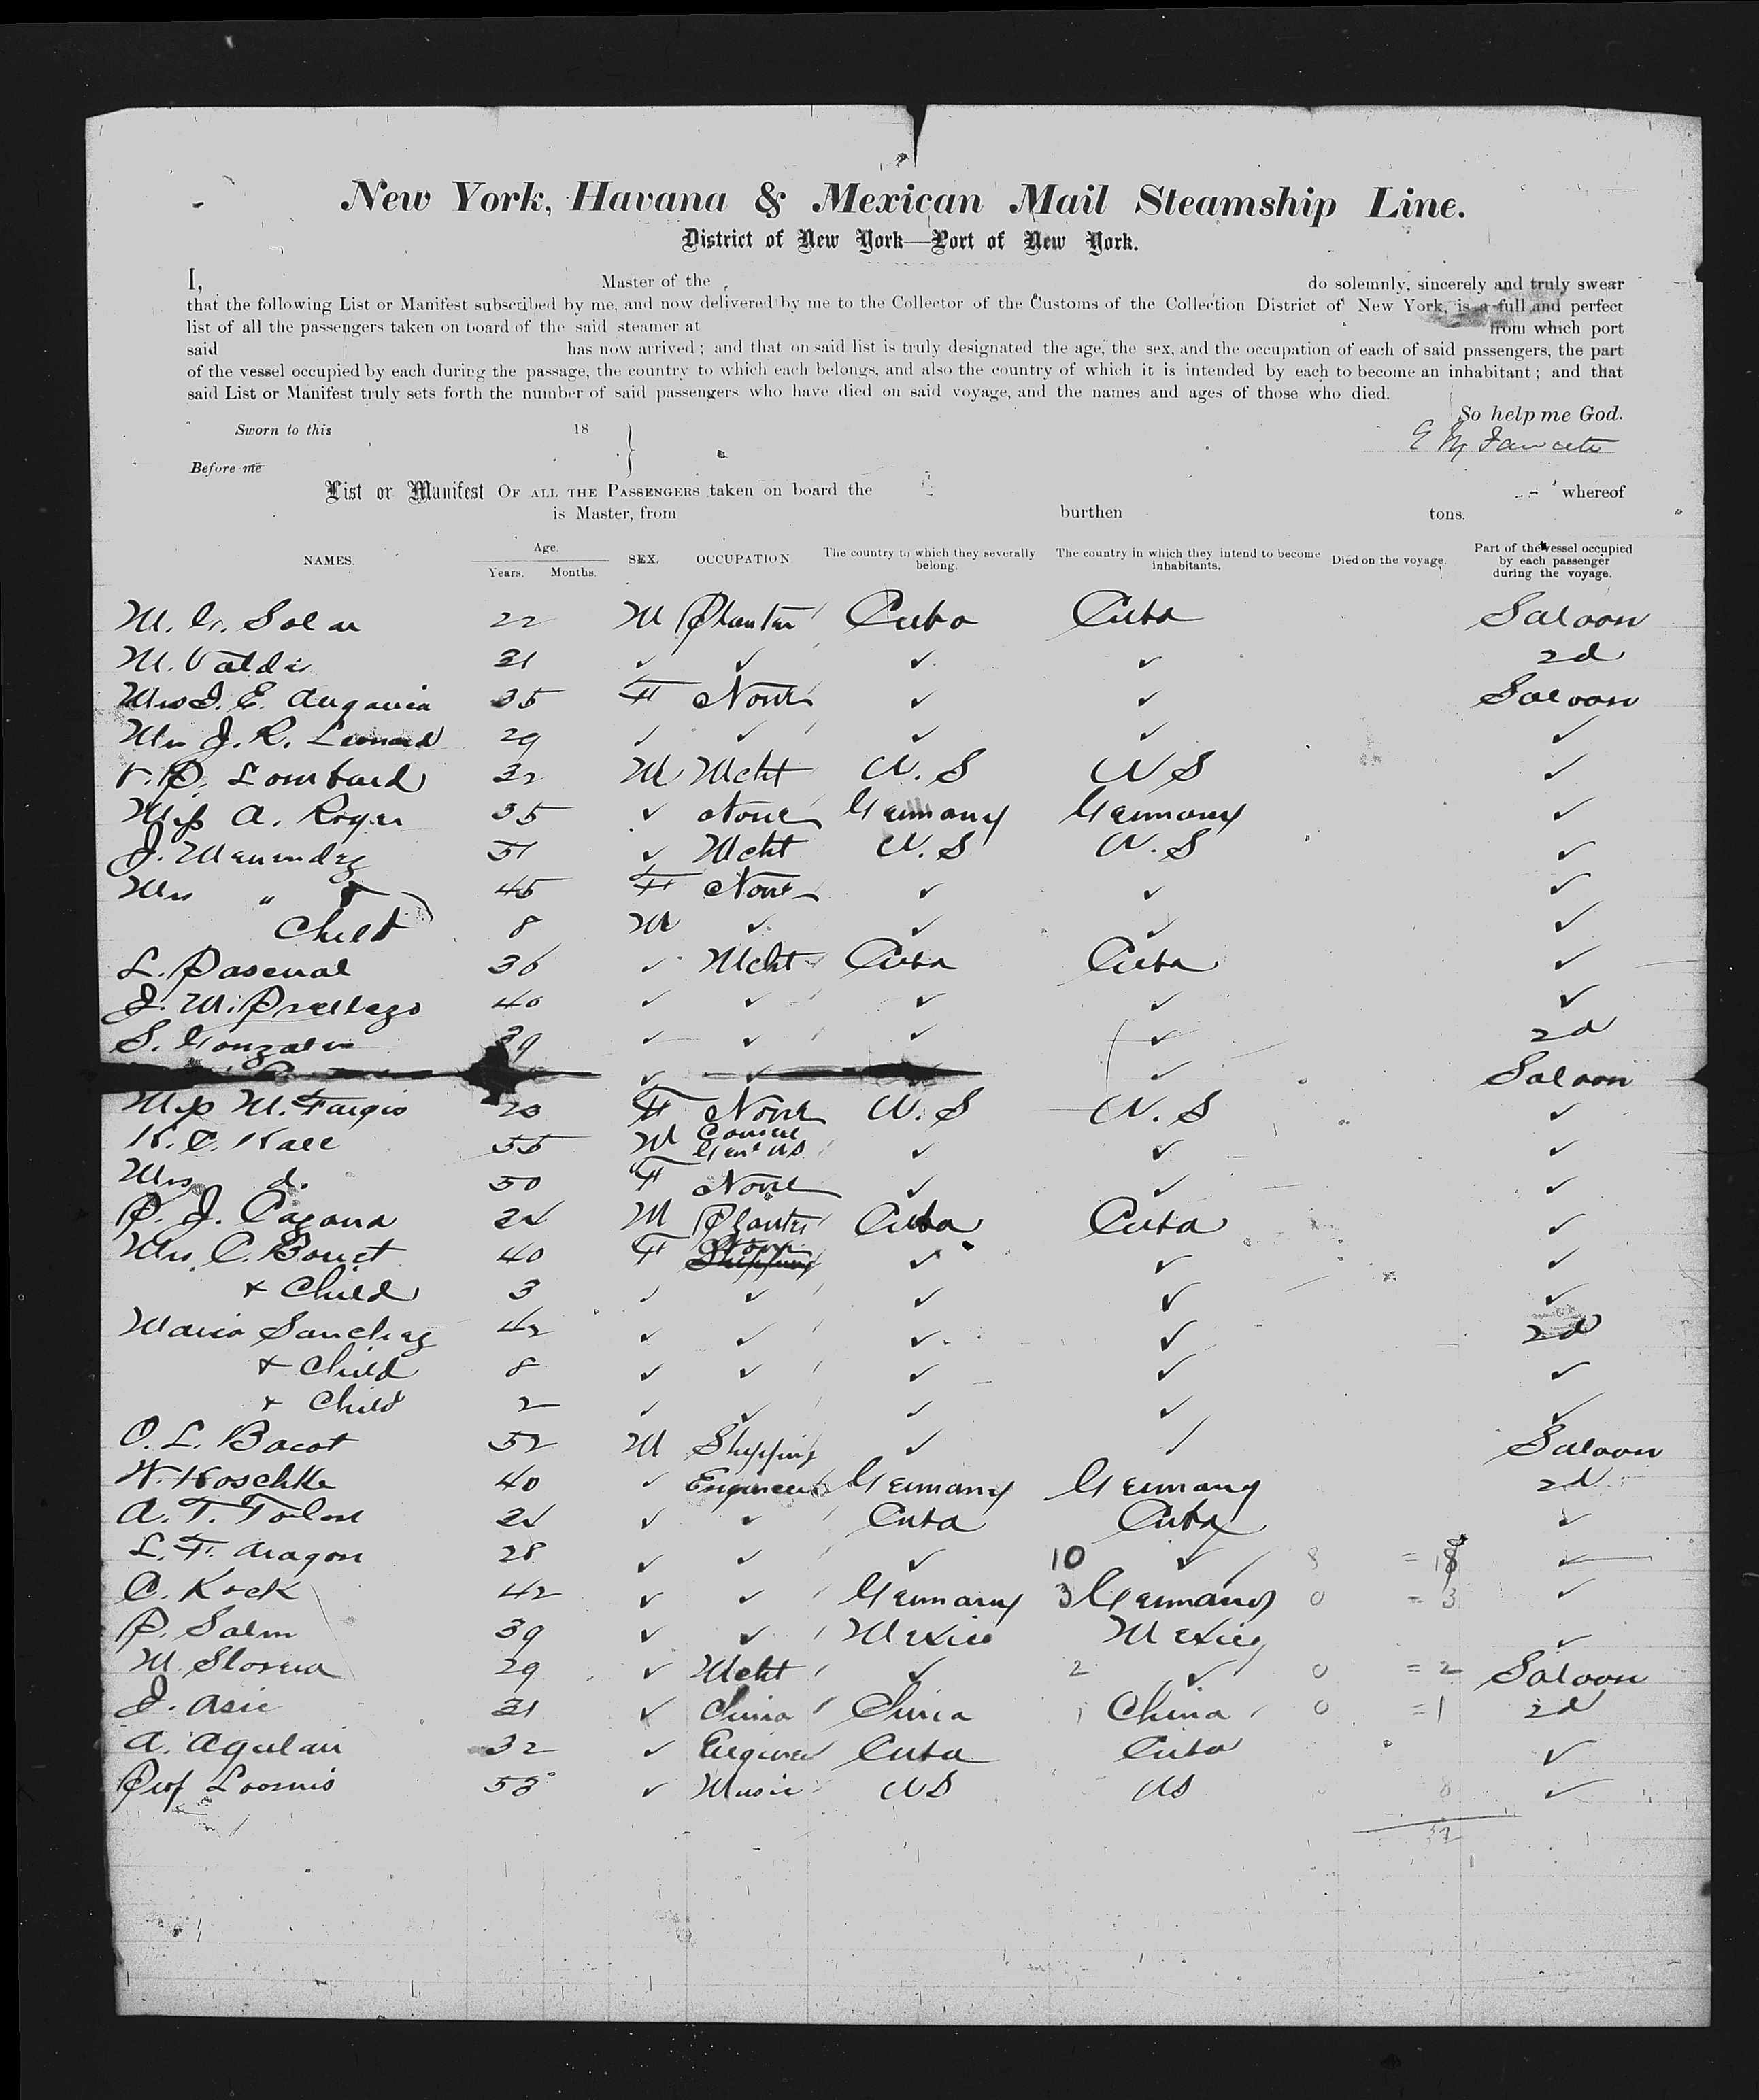 New York, Havana & Mexican Mail Steamship Line.
District of New York—Port of New York.
I, Master of the do solemnly, sincerely and truly swear
that the following List or Manifest subscribed by me, and now delivered by me to the Collector of the Customs of the Collection District of New York, is a full and perfect
list of all the passengers taken on board of the said steamer at from which port
said has now arrived; and that on said list is truly designated the age, the sex, and the occupation of each of said passengers, the part
of the vessel occupied by each during the passage, the country to which each belongs, and also the country of which it is intended by each to become an inhabitant; and that
said List or Manifest truly sets forth the number of said passengers who have died on said voyage, and the names and ages of those who died.
So help me God.
Sworn to this 18
Before me
List or Manifest OF ALL THE PASSENGERS taken on board the whereof
is Master, from burthen tons.
NAMES. Age. Years. Months. SEX. OCCUPATION. The country to which they severally belong. The country in which they intend to become inhabitants. Died on the voyage. Part of the vessel occupied by each passenger during the voyage.
M. Solar 22 M Planter Cuba Cuba Saloon
M. Valdes 31 ✓ ✓ ✓ ✓ 2d
Mrs J. E. 35 F None ✓ ✓ Saloon
Mrs J. R. Leonard 29 ✓ ✓ ✓ ✓ ✓
V. P. Lombard 32 M Mcht U. S U S ✓
Miss A. Roger 35 ✓ None Germany Germany ✓
J. Menendez 51 ✓ Mcht U. S U. S ✓
Mrs " & 45 F None ✓ ✓ ✓
Child 8 M ✓ ✓ ✓ ✓
L. Pascual 36 ✓ Mcht Cuba Cuba ✓
J. M. 40 ✓ ✓ ✓ ✓ ✓
S. Gonzales 39 ✓ ✓ ✓ ✓ 2d
✓ ✓ ✓ ✓ Saloon
Miss M. Fargis 23 F None U. S U. S ✓
H. C. Hall 55 M Consul Genl US ✓ ✓ ✓
Mrs do 50 F None ✓ ✓ ✓
P. J. Cazana 24 M Planter Cuba Cuba ✓
Mrs C. Bouet 40 F None Shipping ✓ ✓ ✓
+ Child 3 ✓ ✓ ✓ ✓ ✓
Maria Sanchez 42 ✓ ✓ ✓ ✓ 2d
+ Child 8 ✓ ✓ ✓ ✓ ✓
+ Child 2 ✓ ✓ ✓ ✓ ✓
O. L. Bacot 52 M Shipping ✓ ✓ Saloon
W. Koschke 40 ✓ Engineer Germany Germany 2d
A. T. Tolon 24 ✓ ✓ Cuba Cuba ✓
L. F. Aragon 28 ✓ ✓ ✓ 10 ✓ 8 = 18 ✓
C. Kock 42 ✓ ✓ Germany 3 Germany 0 = 3 ✓
P. Salm 39 ✓ ✓ Mexico Mexico ✓
M. 29 ✓ Mcht ✓ 2 ✓ 0 = 2 Saloon
J. Asie 31 ✓ China China 1 China 0 = 1 2d
A. Agular 32 ✓ Engineer Cuba Cuba ✓
Prof Loomis 53 ✓ Music US US 8 ✓
32